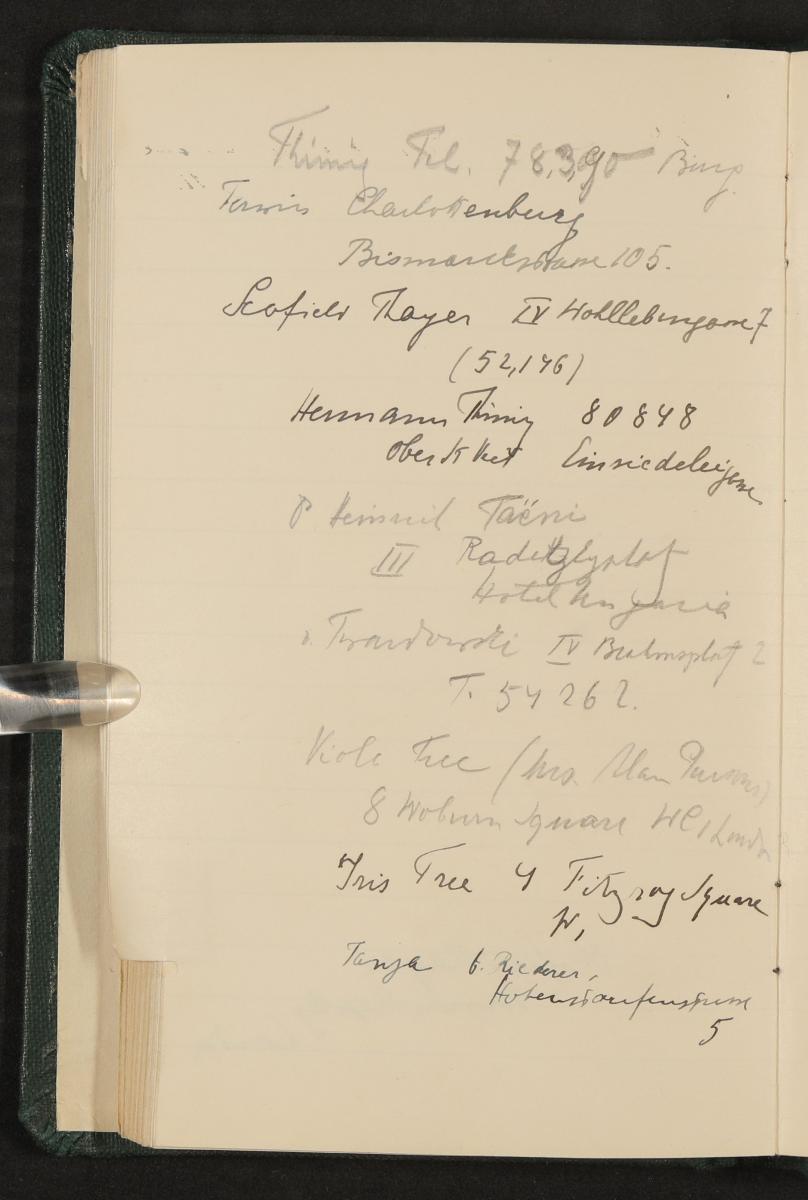 Thimig Tel. 78,3,90 Burg.
Terwin Charlottenburg
Bismarckstrasse 105.
Scofield Thayer IV Wohllebengasse 7
(52,146)
Hermann Thimig 80848
Ober St Veit Einsiedeleigasse
P. Heinrich
III Radetzkyplatz
Hotel Hungaria
v. Twardowski IV Brahmsplatz 2
T. 54262.
Viola Tree (Mrs. Alan Parsons)
8 Woburn Square WC1 London
Iris Tree 4 Fitzroy Square
W,
Tanja b. Riederer,
Hohenstaufenstrasse
5